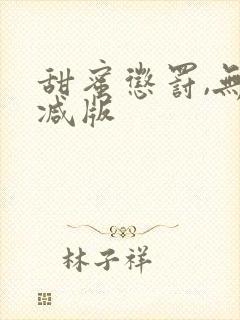 甜蜜懲罰,無
减版
林子祥